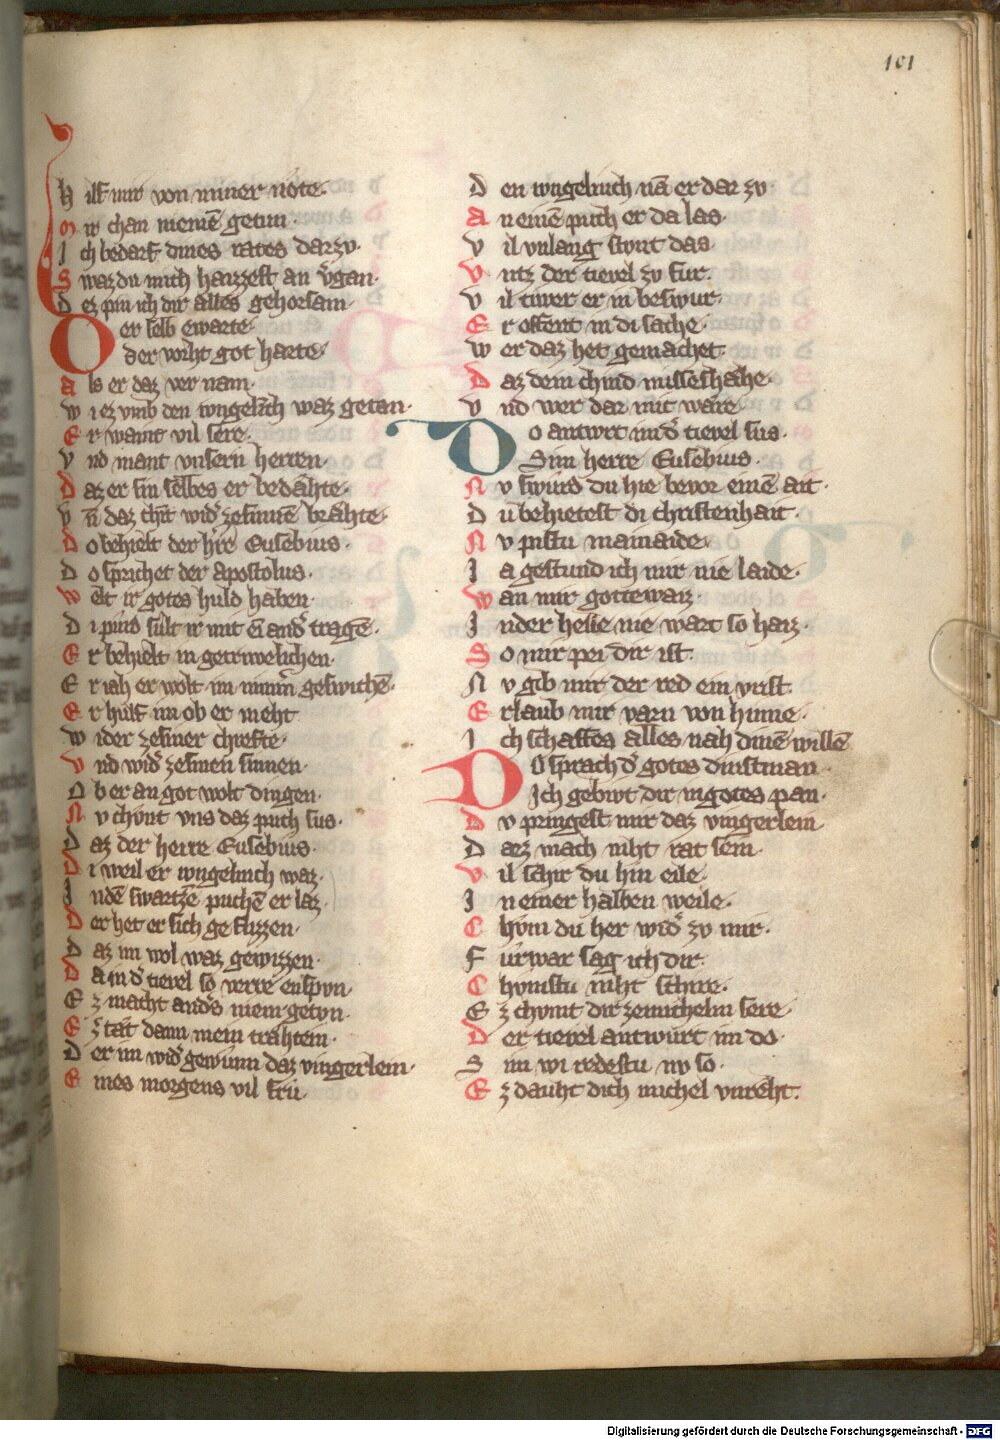 101
Hilf mir von miner note.
Mir chan niemē getun.
Ich bedarf dines rates darzv.
Swaz du mich haizzest an vgan.
Dez pin ich dir alles gehorsam.
Do er selb ewarte.
der vorht got harte.
als er daz ver nam.
wi ez vmb den wngelrich waz getan.
Er waint vil sere.
vnd mant vnsern herren.
Daz er sin selbes er bedæhte.
vn̄ daz chīt wid' zesinnē bræhte.
Do behielt der h're Eusebius.
Do sprichet der apostolus.
welt ir gotes huld haben.
Di pürd sült ir mit ein and' tragē.
Er behielt in getriwelichen.
Er iah er wolt im nimm' geswichē.
Er hülf im ob er meht
wider zesiner chrefte.
vnd wid' zesinen sinnen.
Ob er an got wolt dingen.
Nv chvnt vns daz puch sus.
Daz der herre Eusebius.
Di weil er wngelrich waz.
In dē swartzē puchē er laz.
Der het er sich ge flizzen.
Daz im wol waz gewizzen.
Da in d' tievel so verre enspvn.
Ez macht and's niem getvn.
Ez tæt dann mein træhtein.
Der im wid' gewunn daz vingerlein.
Eines morgens vil frü.
Den wngelrich nā er dar zv
An einē puch er da las.
vil vnlang stvnt das
vntz der tievel zv fur.
vil tiwer er in beswur.
Er offent in di sache.
wer daz het gemachet.
Daz dem chind misseshæhe.
vnd wer dar mit wære.
Do antwrt im d' tievel sus.
Sim herre Eusebius.
Nv swürd du hie bevor einē ait.
Du behietest di christenhait.
Nv pistu mainaide.
Ja gestund ich mir nie laide.
wan mir gottewaiz
In der helle nie wart so haiz.
So mir pei dir ist.
Nv gib mir der red ein vrist.
Erlaub mir varn von hinne.
Ich schaffes alles nah dinē willē
Do sprach d' gotes dinstman.
Ich gebivt dir in gotes pan.
Dv pringest mir daz vingerlein
Daez mach niht rat sein.
vil schir du hin eile.
In einer halben weile.
Chvm du her wid' zv mir.
Fürwar sag ich dir.
Chvmstu niht schire.
Ez chvmt dir zemichelm sere.
Der tievel antwürt im do.
Sim wi redestu nv so.
Ez dauht dich michel vnreht.
Digitalisierung gefördert durch die Deutsche Forschungsgemeinschaft - DFG